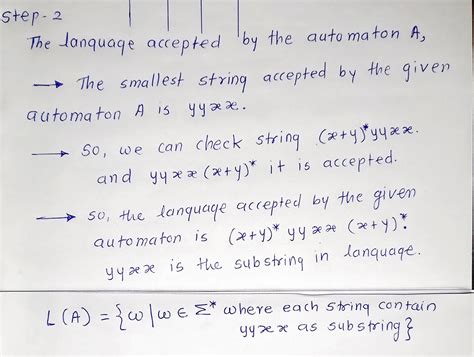 Step-2
The language accepted by the automaton A,
→ The smallest string accepted by the given
automaton A is yyxx.
→ So, we can check string (x+y)*yyxx.
and yyxx(x+y)* it is accepted.
→ So, the language accepted by the given
automaton is (x+y)* yyxx (x+y)*.
yyxx is the substring in language.
L(A) = {ω|ω ∈ Σ* where each string contain
yyxx as substring}